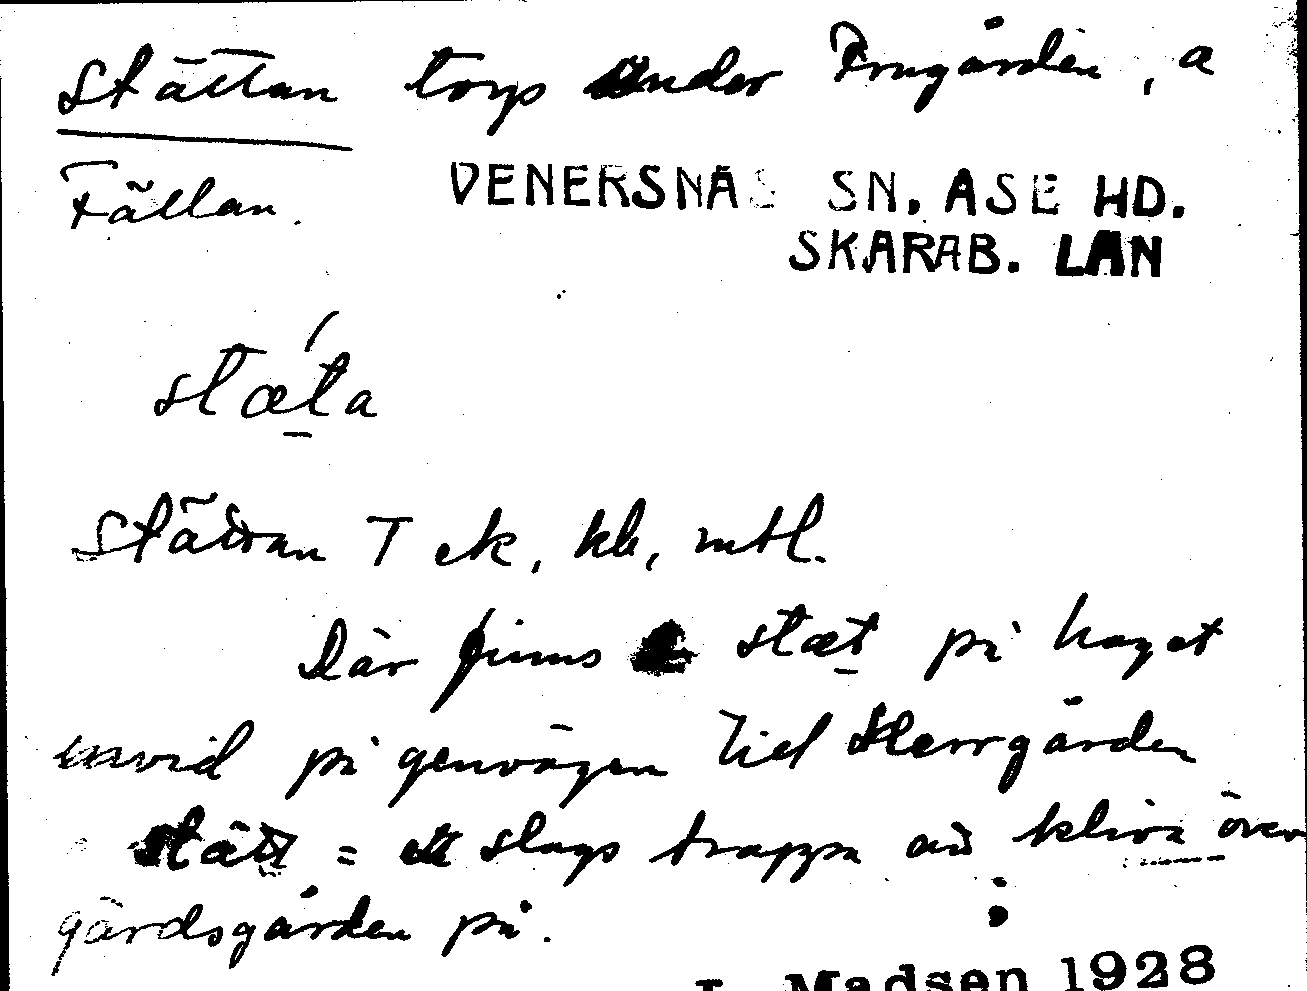 Stättan torp under Frugården, a
Fällan. VENERSNÄS SN. ÅSE HD.
SKARAB. LÄN
stæ´ta
Stättan T ek, kb, mtl.
Där finns stæt på haget
invid på genvägen till Herrgården
stätt = ett slags trappa att kliva över
gärdsgården på.
L. Madsen 1928